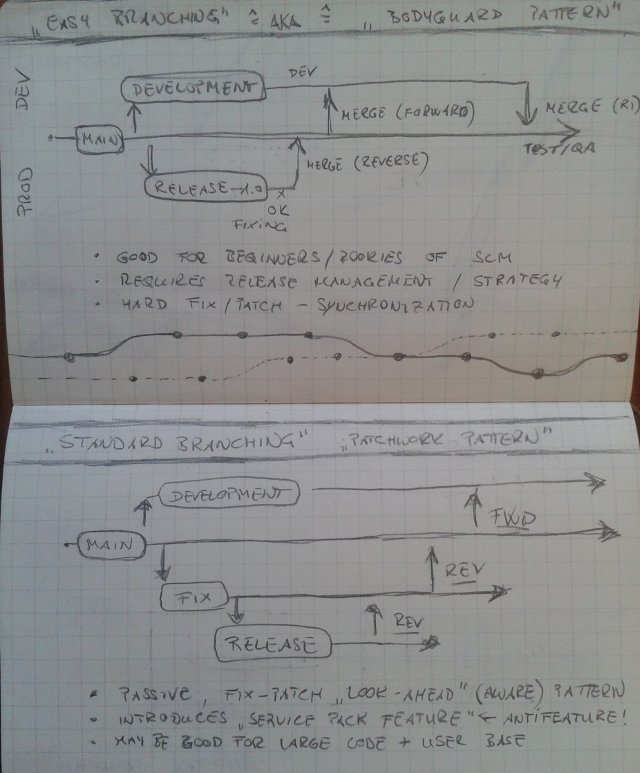 „EASY BRANCHING" ≙ AKA ≙ „BODYGUARD PATTERN"
DEV
DEV
DEVELOPMENT
MERGE (FORWARD)
MERGE (RI)
MAIN
TEST/QA
MERGE (REVERSE)
PROD
RELEASE-1.0
X
OK
FIXING
• GOOD FOR BEGINNERS/ROOKIES OF SCM
• REQUIRES RELEASE MANAGEMENT / STRATEGY
• HARD FIX/PATCH - SYNCHRONIZATION
„STANDARD BRANCHING" „PATCHWORK PATTERN"
DEVELOPMENT
FWD
MAIN
REV
FIX
REV
RELEASE
• PASSIVE, FIX-PATCH „LOOK-AHEAD" (AWARE) PATTERN
• INTRODUCES „SERVICE PACK FEATURE" ← ANTIFEATURE!
• MAY BE GOOD FOR LARGE CODE + USER BASE